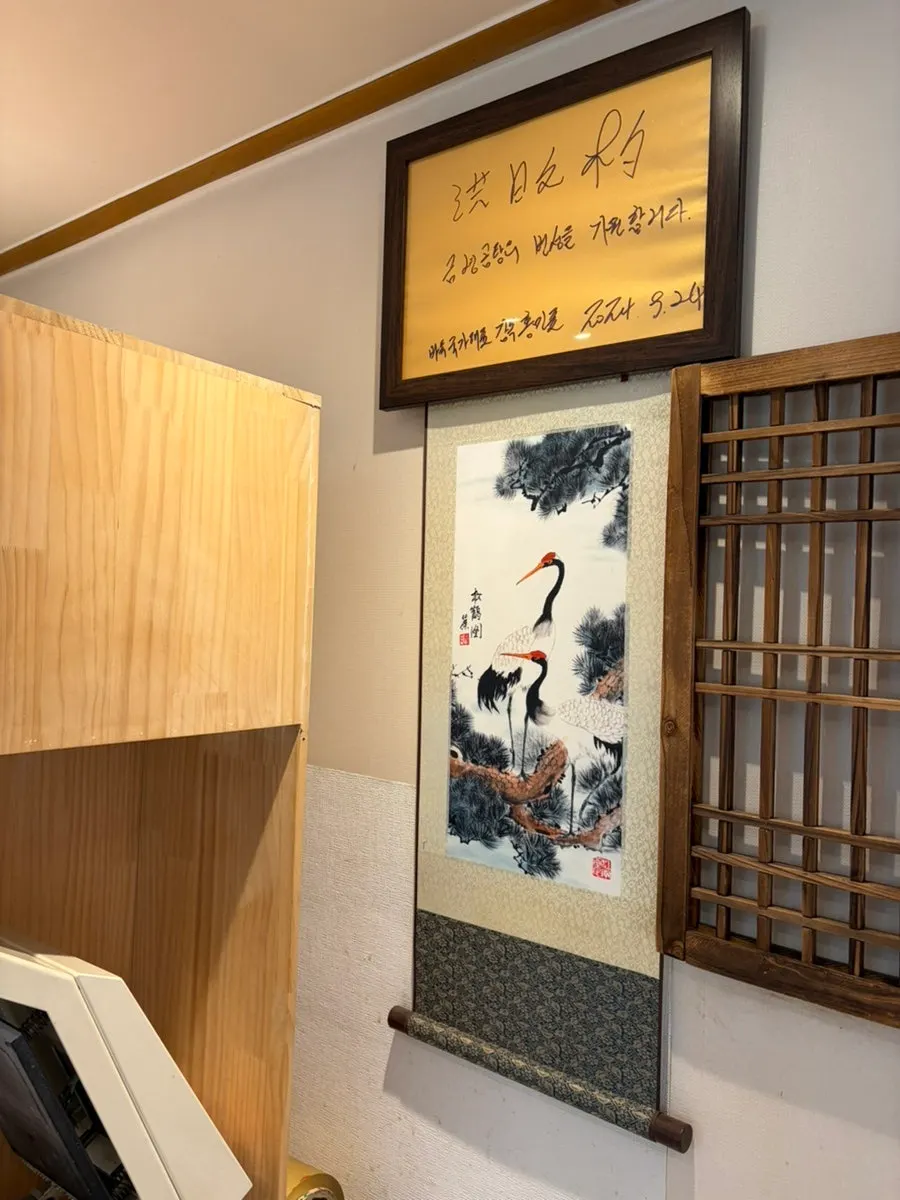 洪旼杓
금정곰탕의 번성을 기원합니다.
바둑 국가대표 감독 홍민표 2024. 9. 24
松鶴圖